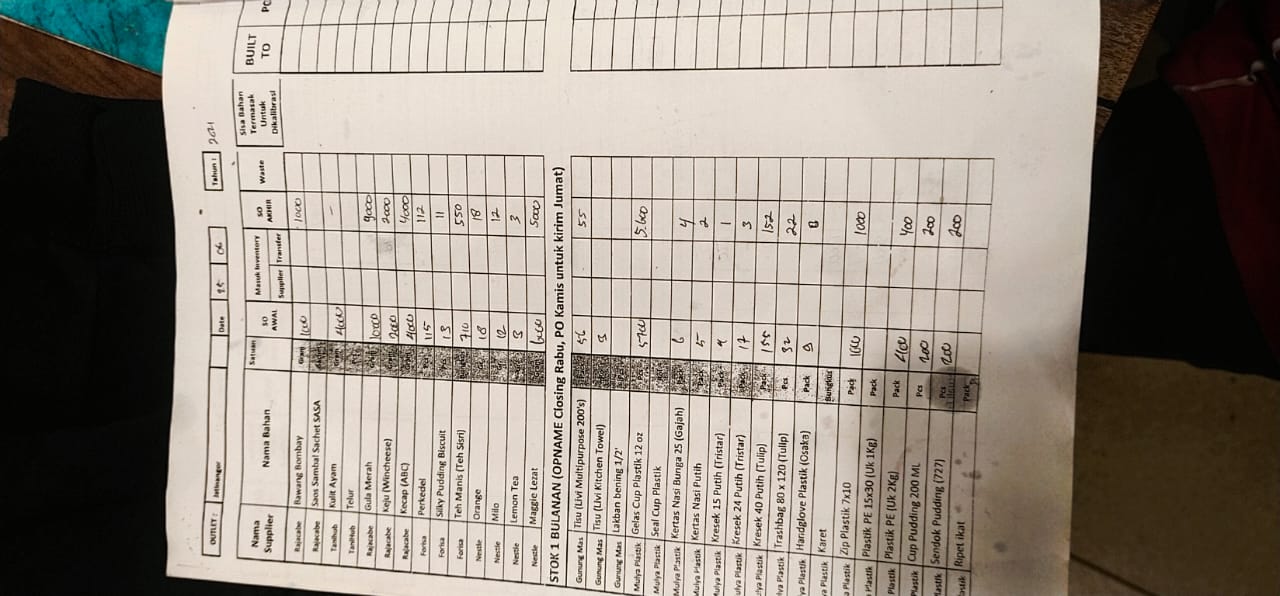 OUTLET : Jatinangor Date 25 06 Tahun : 2021
Nama Supplier Nama Bahan Satuan SO AWAL Masuk Inventory Supplier Transfer SO AKHIR Waste Sisa Bahan Termasak Untuk Dikalibrasi BUILT TO PO
Rajacabe Bawang Bombay Gram 1000 1000
Rajacabe Saos Sambal Sachet SASA
Tanihub Kulit Ayam 4000 -
TaniHub Telur
Rajacabe Gula Merah 10000 9000
Rajacabe Keju (Wincheese) 2000 2000
Rajacabe Kecap (ABC) 4000 4000
Forisa Perkedel 115 112
Forisa Silky Pudding Biscuit 13 11
Forisa Teh Manis (Teh Sisri) 710 550
Nestle Orange 18 18
Nestle Milo 12 12
Nestle Lemon Tea 3 3
Nestle Maggie Lezat 6000 5000
STOK 1 BULANAN (OPNAME Closing Rabu, PO Kamis untuk kirim Jumat)
Gunung Mas Tisu (Livi Multipurpose 200's) 56 55
Gunung Mas Tisu (Livi Kitchen Towel) 3
Gunung Mas Lakban bening 1/2'
Mulya Plastik Gelas Cup Plastik 12 oz 5700 5.600
Mulya Plastik Seal Cup Plastik
Mulya Plastik Kertas Nasi Bunga 25 (Gajah) Pack 6 4
Mulya Plastik Kertas Nasi Putih Pack 5 2
Mulya Plastik Kresek 15 Putih (Tristar) Pack 1
Mulya Plastik Kresek 24 Putih (Tristar) Pack 17 3
Mulya Plastik Kresek 40 Putih (Tulip) Pack 155 152
Mulya Plastik Trashbag 80 x 120 (Tulip) Pcs 32 22
Mulya Plastik Handglove Plastik (Osaka) Pack
Plastik Karet Bungkus
Plastik Zip Plastik 7x10 Pack 1000 1000
Plastik Plastik PE 15x30 (Uk 1Kg) Pack
Plastik Plastik PE (Uk 2Kg) Pack 400 400
Plastik Cup Pudding 200 ML Pcs 200 200
Sendok Pudding (727) Pcs 200 200
Ripet ikat Pack